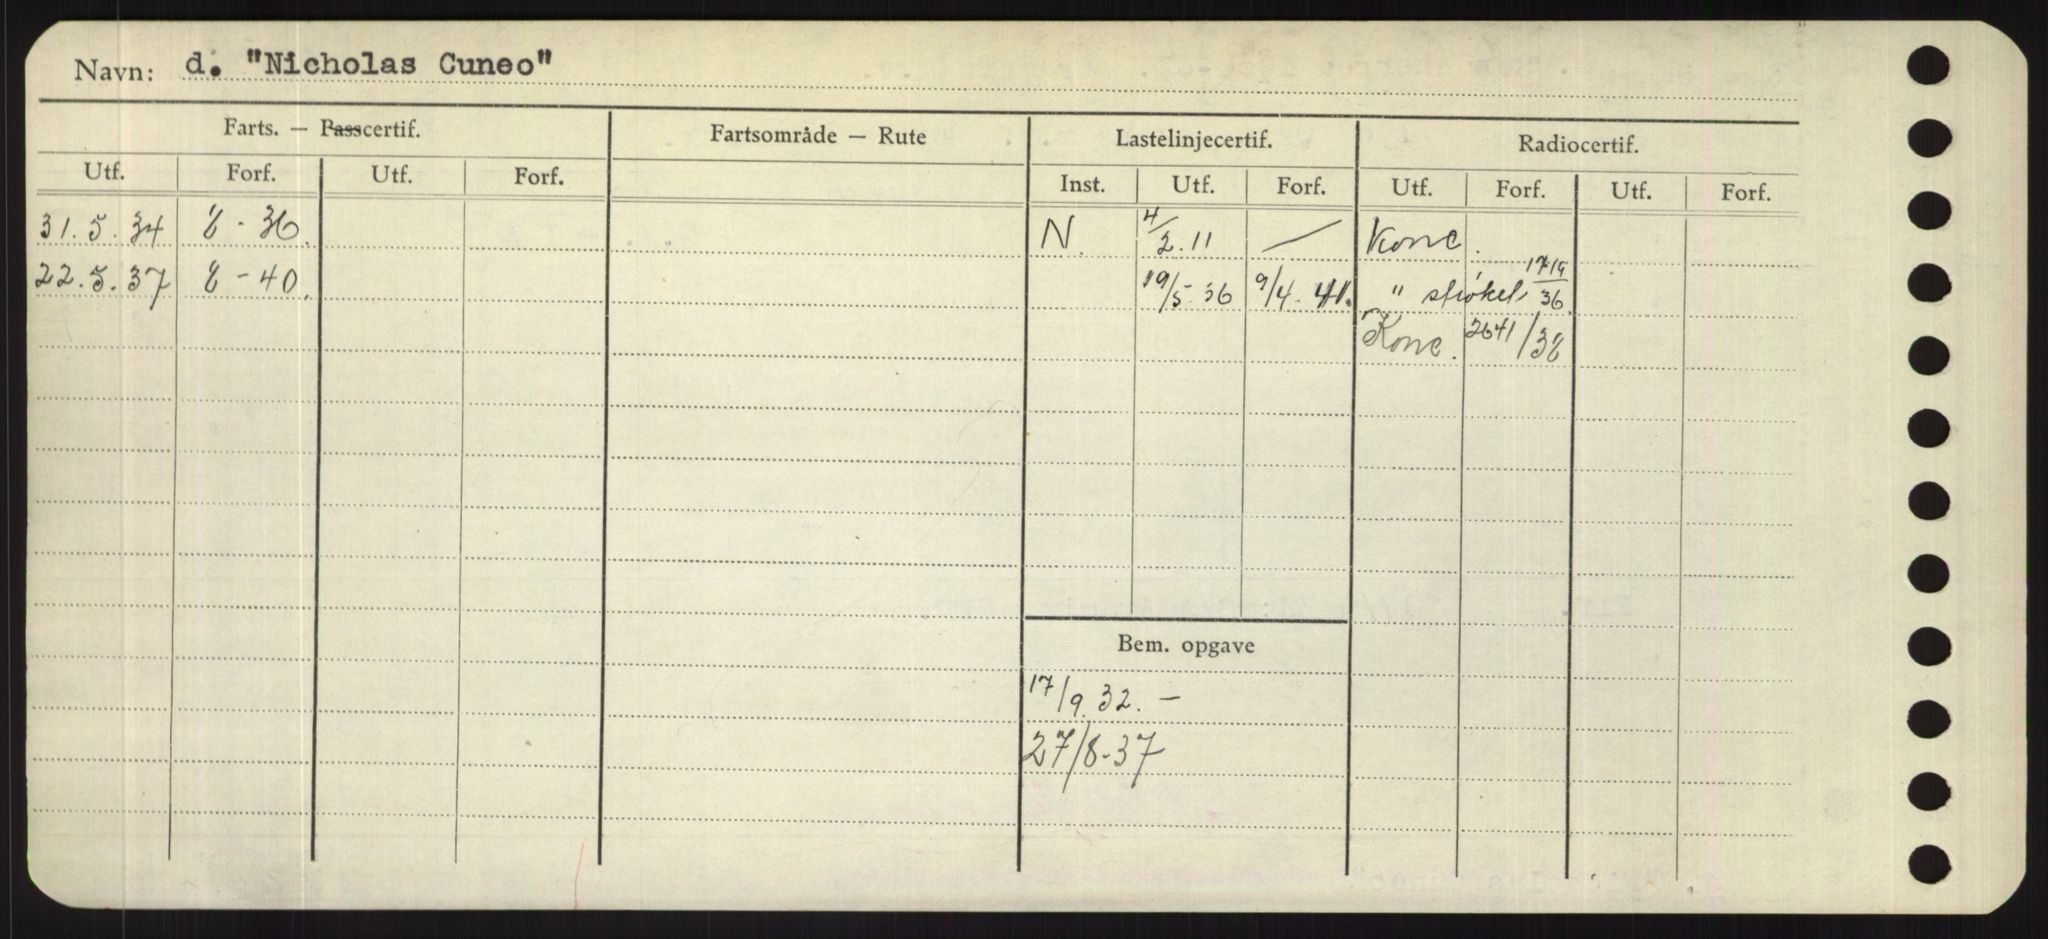 Navn: d. "Nicholas Cuneo"
Farts. — Passcertif. Fartsområde — Rute Lastelinjecertif. Radiocertif.
Utf. Forf. Utf. Forf. Inst. Utf. Forf. Utf. Forf. Utf. Forf.
31.5.34 8-36. N. 4/2.11 — Konc.
22.5.37 8-40. 19/5.36 9/4.41. " sløket 1719/36
Konc. 2641/38
Bem. opgave
17/9.32.-
27/8-37